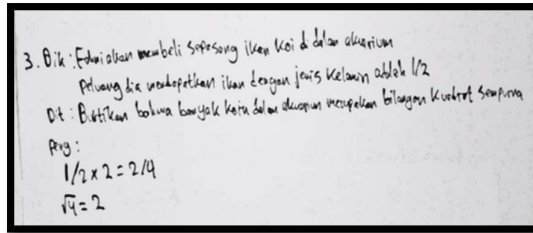 3. Dik : Edwi akan membeli sepasang ikan Koi di dalam akuarium
Peluang dia mendapatkan ikan dengan jenis kelamin adalah 1/2
Dit : Buktikan bahwa banyak koin dalam akuarium merupakan bilangan kuadrat sempurna
Peny :
1/2 x 2 = 2/4
√4 = 2